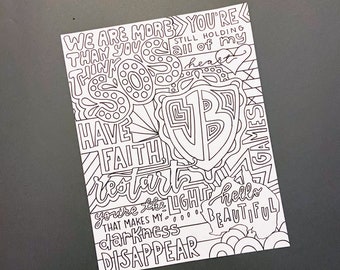 WE ARE MORE
THAN YOU
THINK
YOU'RE
STILL HOLDING
all of my
heart
SOS
JB
HAVE
FAITH
GAMES
restart
you're the LIGHT
THAT MAKES MY
darkness
DISAPPEAR
hello
BEAUTIFUL